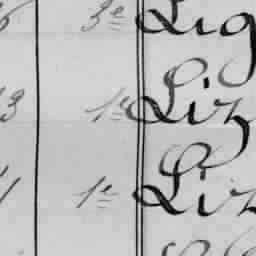 3e Lig
3 1e Liz
1 1e Liz